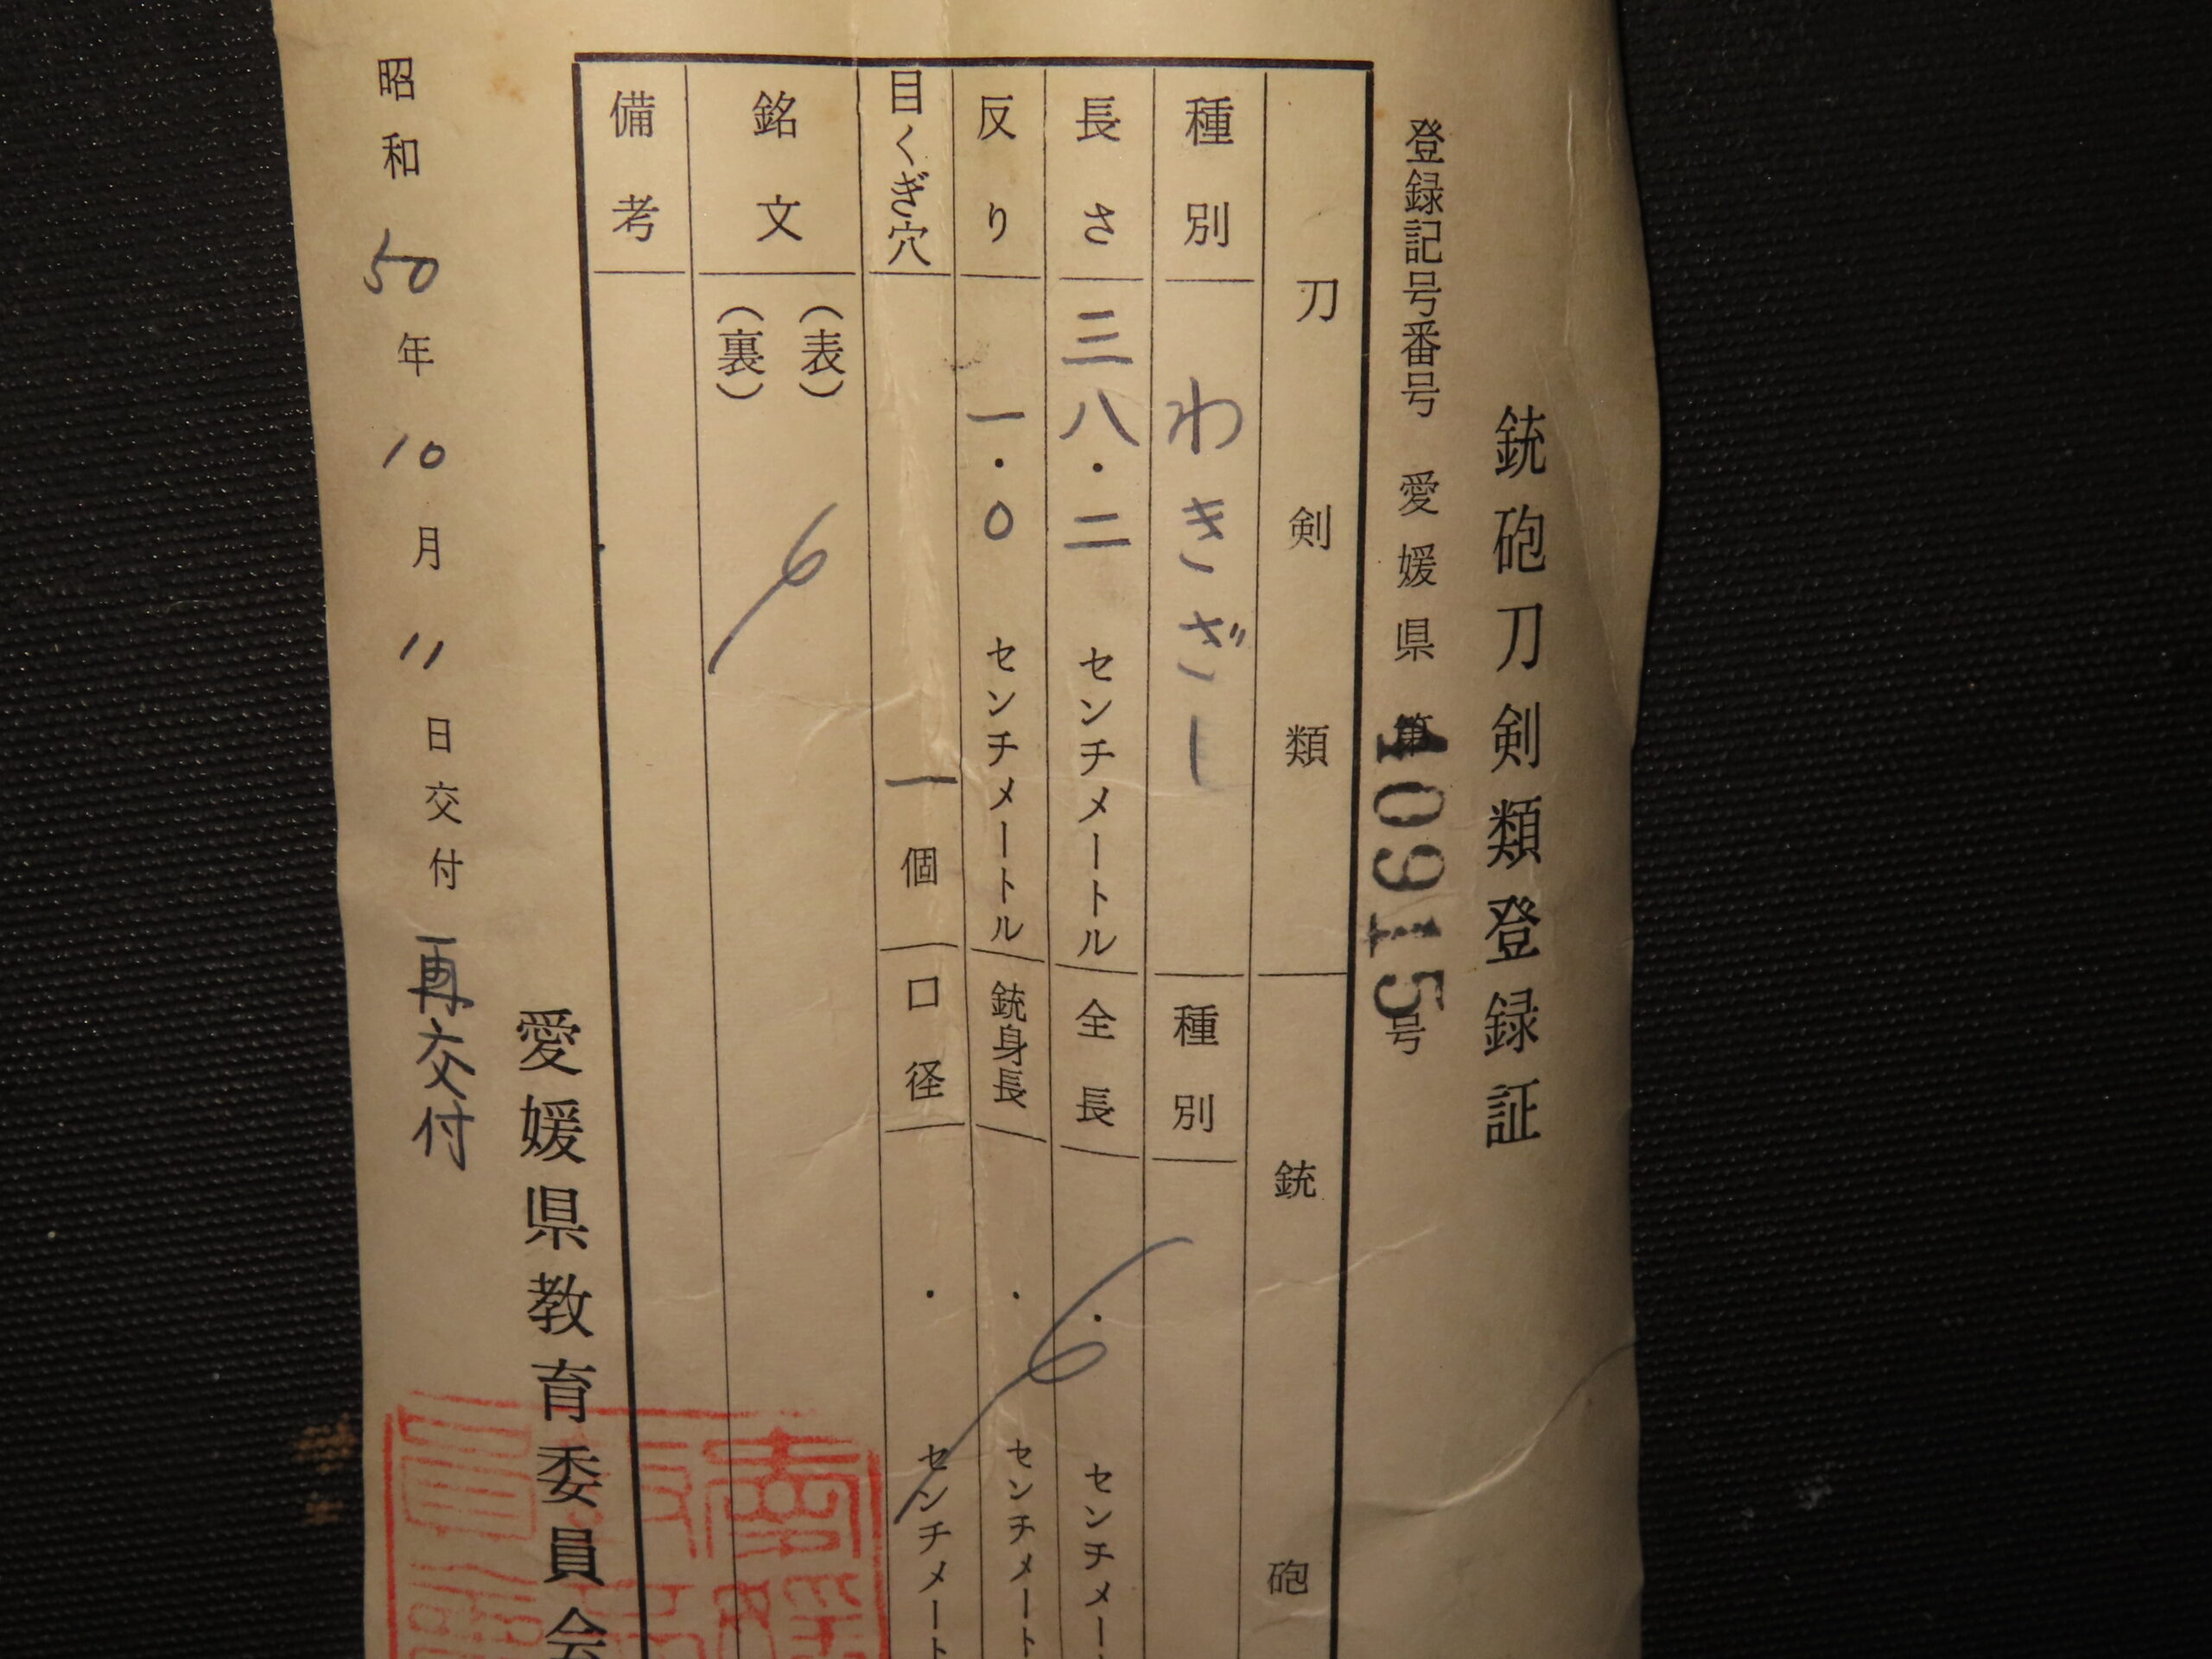 銃砲刀剣類登録証
登録記号番号 愛媛県 第40915号
刀剣類
種別 わきざし
長さ 三八・二 センチメートル
反り 一・〇 センチメートル
目くぎ穴 一個
銘文 (表)
(裏)
備考
銃砲
種別
全長 ・ センチメー
銃身長 ・ センチメート
口径 ・ センチメート
愛媛県教育委員会
昭和50年10月11日交付 再交付